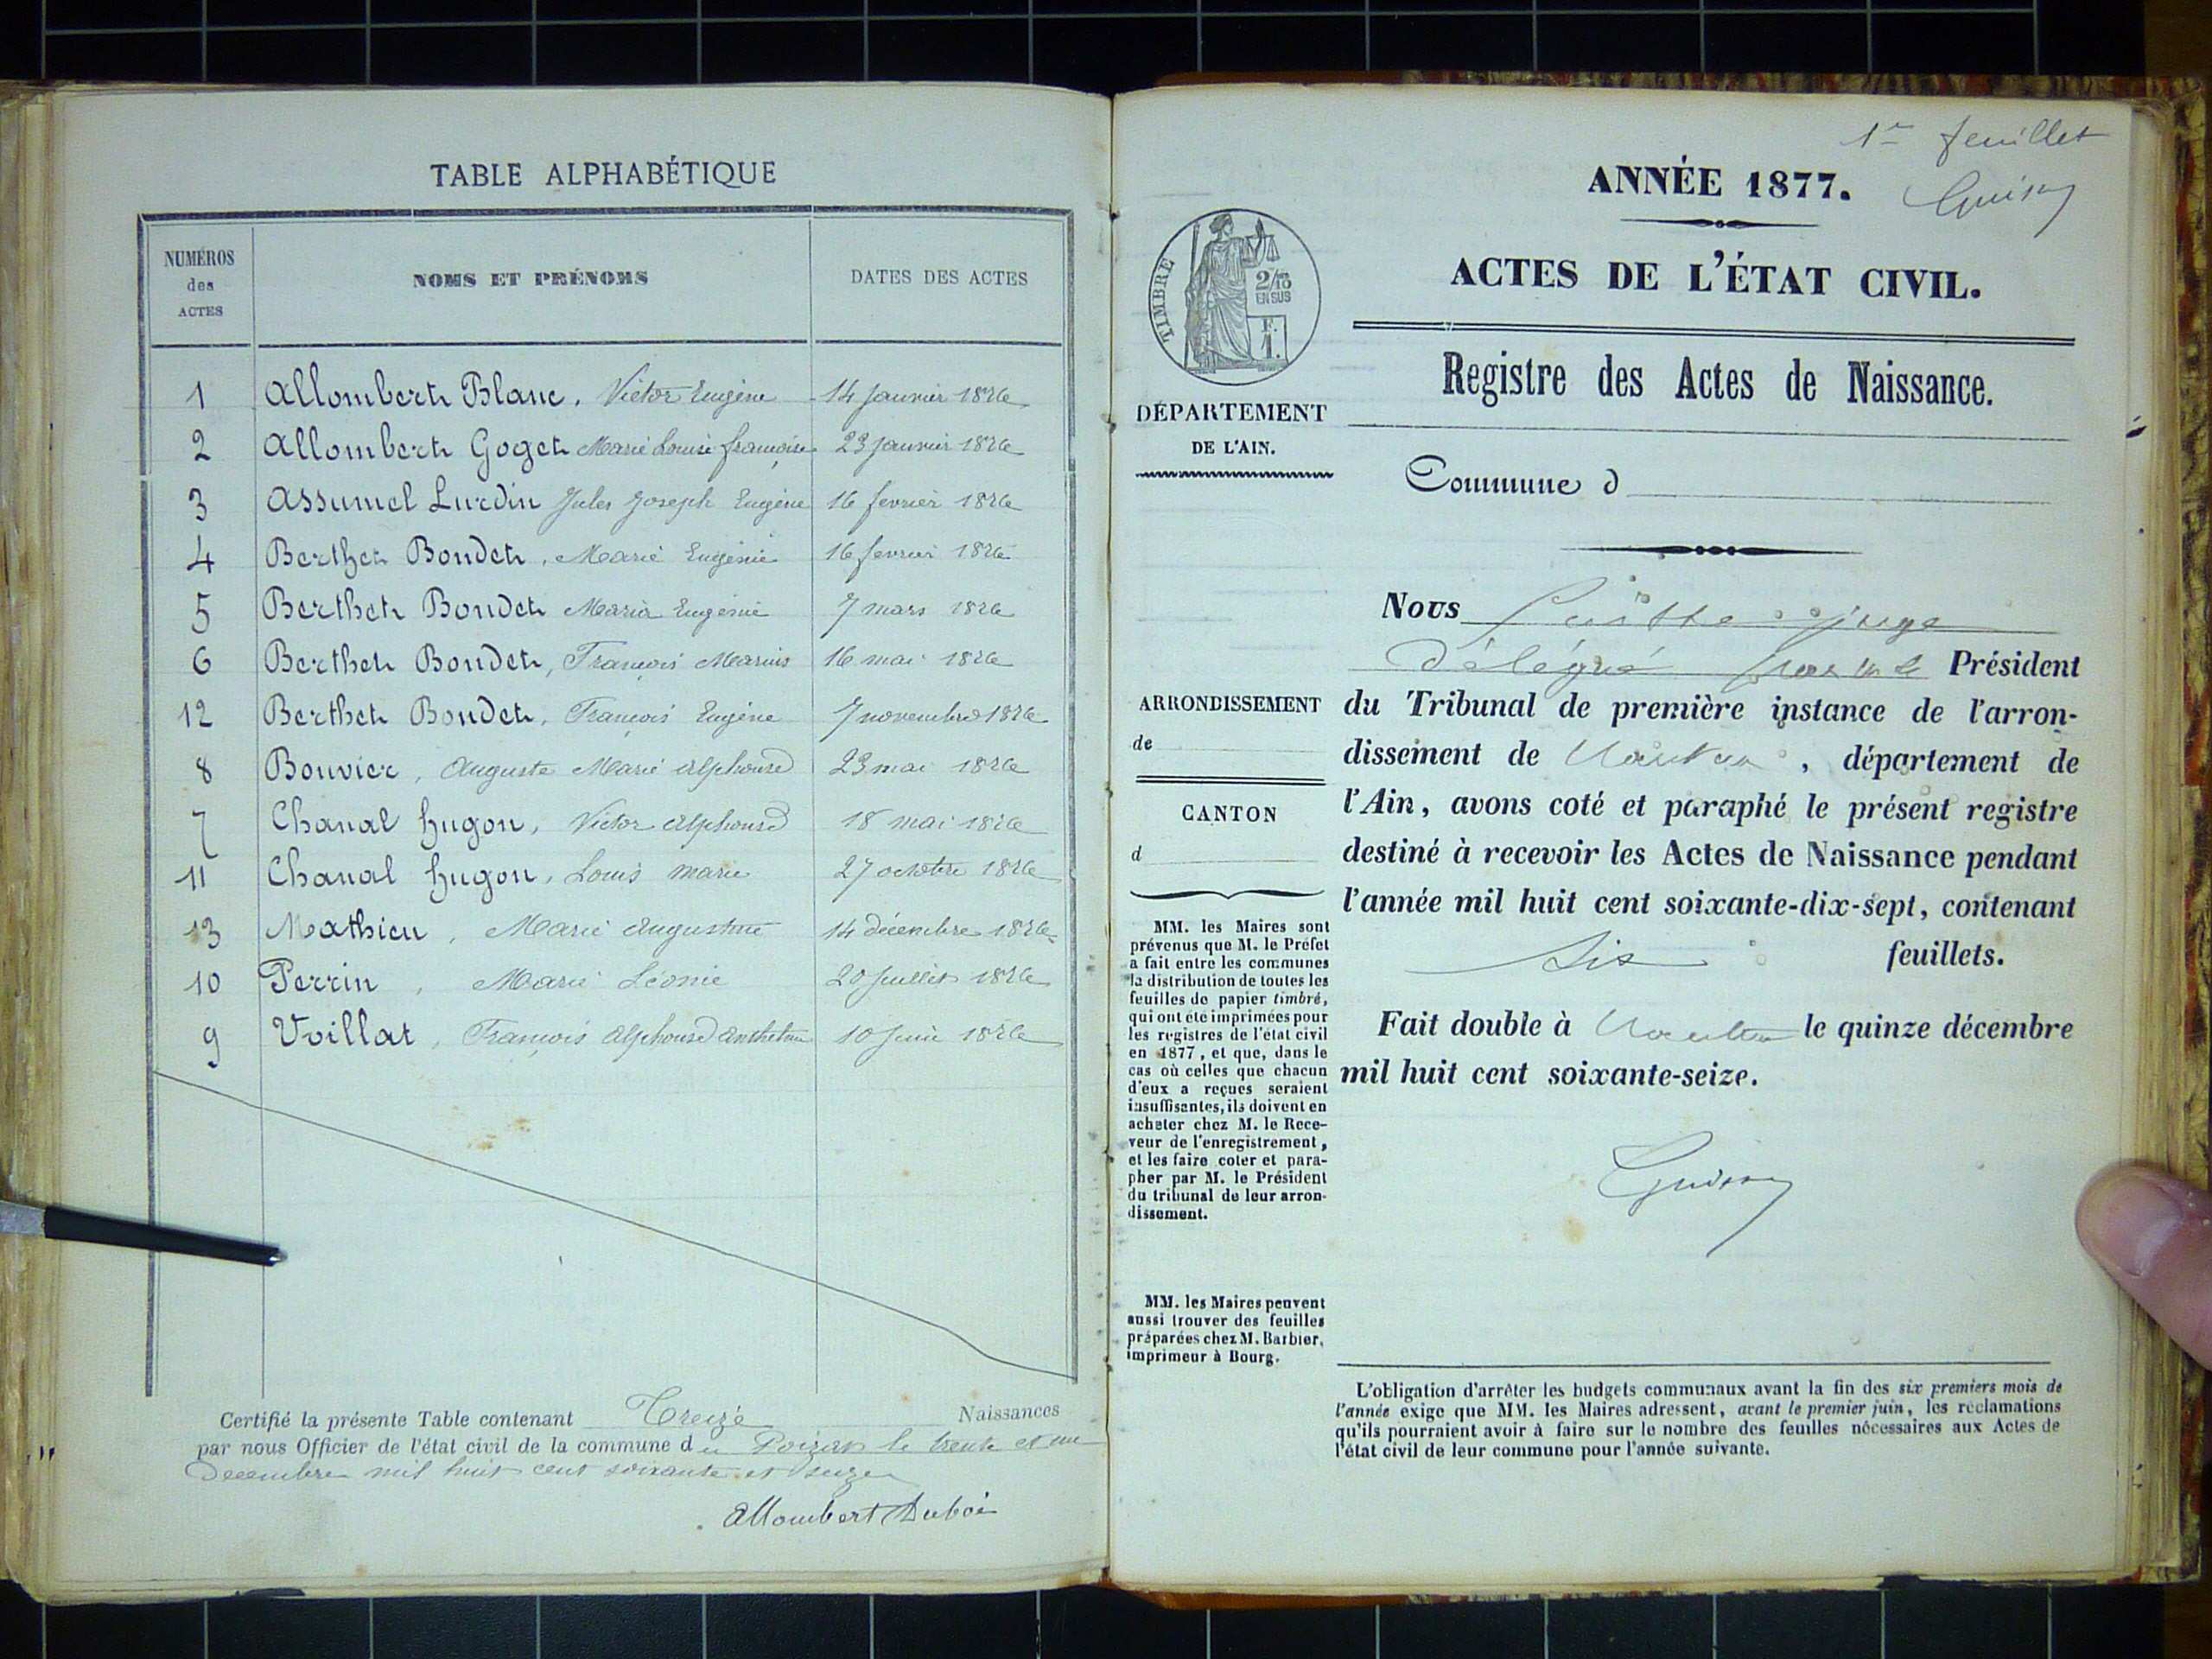 TABLE ALPHABÉTIQUE
NUMÉROS des ACTES
NOMS ET PRÉNOMS
DATES DES ACTES
1 Allombert Blanc, Victor Eugène 14 janvier 1876
2 Allombert Goget Marie Louise françoise 23 janvier 1876
3 Assumel Lurdin Jules Joseph Eugène 16 fevrier 1876
4 Berthet Bondet, Marie Eugénie 16 fevrier 1876
5 Berthet Bondet Maria Eugénie 7 mars 1876
6 Berthet Bondet, François Marius 16 mai 1876
12 Berthet Bondet, François Eugène 7 novembre 1876
8 Bouvier, Auguste Marie Alphonse 23 mai 1876
7 Chanal hugon, Victor Alphonse 18 mai 1876
11 Chanal hugon, Louis Marie 27 octobre 1876
13 Mathieu, Marie Augustine 14 décembre 1876
10 Perrin, Marie Léonie 20 Juillet 1876
9 Voillat, François Alphonse Anthelme 10 Juin 1876
Certifié la présente Table contenant Treize Naissances
par nous Officier de l'état civil de la commune du Poizat le trente et un
Decembre mil huit cent soixante et seize
Allombert Duboi
1er feuillet
ANNÉE 1877.
ACTES DE L'ÉTAT CIVIL.
TIMBRE
2/10
EN SUS
F.
1.
Registre des Actes de Naissance.
DÉPARTEMENT
DE L'AIN.
Commune d
Nous juge
délégué Président
ARRONDISSEMENT
de
CANTON
d
du Tribunal de première instance de l'arron-
dissement de Nantua, département de
l'Ain, avons coté et paraphé le présent registre
destiné à recevoir les Actes de Naissance pendant
l'année mil huit cent soixante-dix-sept, contenant
Six feuillets.
Fait double à Nantua le quinze décembre
mil huit cent soixante-seize.
MM. les Maires sont
prévenus que M. le Préfet
a fait entre les communes
la distribution de toutes les
feuilles de papier timbré,
qui ont été imprimées pour
les registres de l'état civil
en 1877, et que, dans le
cas où celles que chacun
d'eux a reçues seraient
insuffisantes, ils doivent en
acheter chez M. le Rece-
veur de l'enregistrement,
et les faire coter et para-
pher par M. le Président
du tribunal de leur arron-
dissement.
MM. les Maires peuvent
aussi trouver des feuilles
préparées chez M. Barbier,
imprimeur à Bourg.
L'obligation d'arrêter les budgets communaux avant la fin des six premiers mois de
l'année exige que MM. les Maires adressent, avant le premier juin, les réclamations
qu'ils pourraient avoir à faire sur le nombre des feuilles nécessaires aux Actes de
l'état civil de leur commune pour l'année suivante.